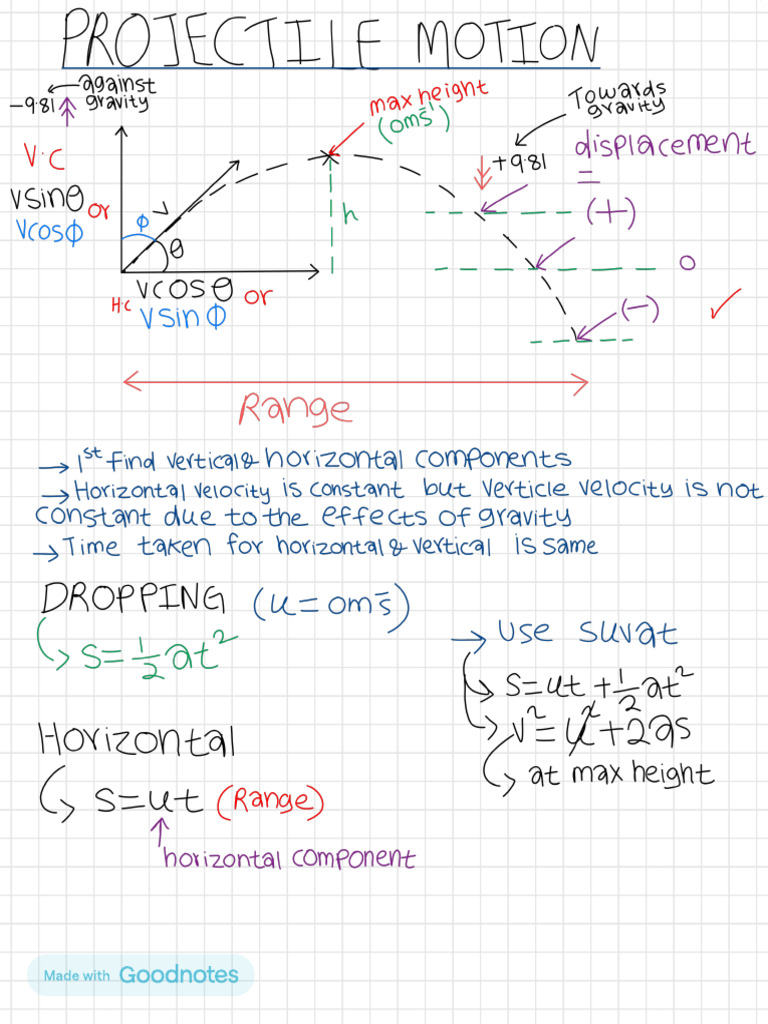 PROJECTILE MOTION
against
-9.81 gravity
max height
(0ms⁻¹)
Towards
gravity
+9.81
displacement
=
(+)
V.C
vsinθ or
vcosϕ
ϕ
v
θ
h
0
(-)
vcosθ or
H.C
vsinϕ
Range
→ 1st find vertical & horizontal components
→ Horizontal velocity is constant but verticle velocity is not
constant due to the effects of gravity
→ Time taken for horizontal & vertical is same
DROPPING (u=0ms⁻)
s=½at²
→ use suvat
s=ut+½at²
v²=u²+2as
at max height
Horizontal
s=ut (Range)
horizontal component
Made with Goodnotes